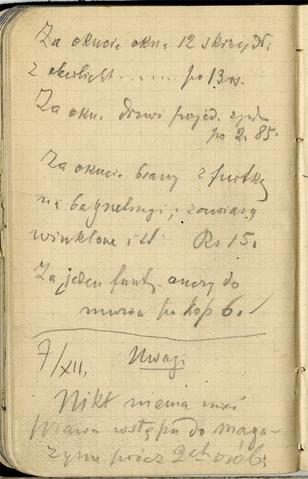 Za okucie okna 12 skrzydł.
z oberlicht ...... po 13 rs.
Za oku. drzwi pojed.
po 2. 85.
Za okucie bramy z furtką
na bagnetungi; zawiasy
winklowe i t d Rs 15.
Za jeden funt. ancry do
muru po kop 6.
7/XII. Uwagi
Nikt niema mieć
prawa wstępu do maga-
zynu prócz 2ch osób: